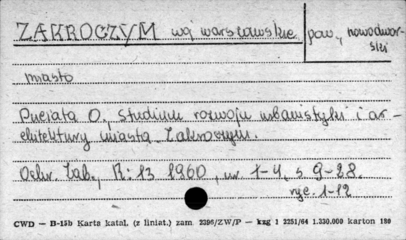 ZAKROCZYM woj warszawskie pow, nowodwor-
ski
miasto
Puciata O., Studium rozwoju urbanistyki i ar-
chitektury miasta Zakroczym.
Ochr. Zab., R: 13 1960, nr 1-4, s 9-28.
ryc. 1-12
CWD — B-15b Karta katal. (z liniat.) zam. 2396/ZW/P — kzg 1 2251/64 1.230.000 karton 180